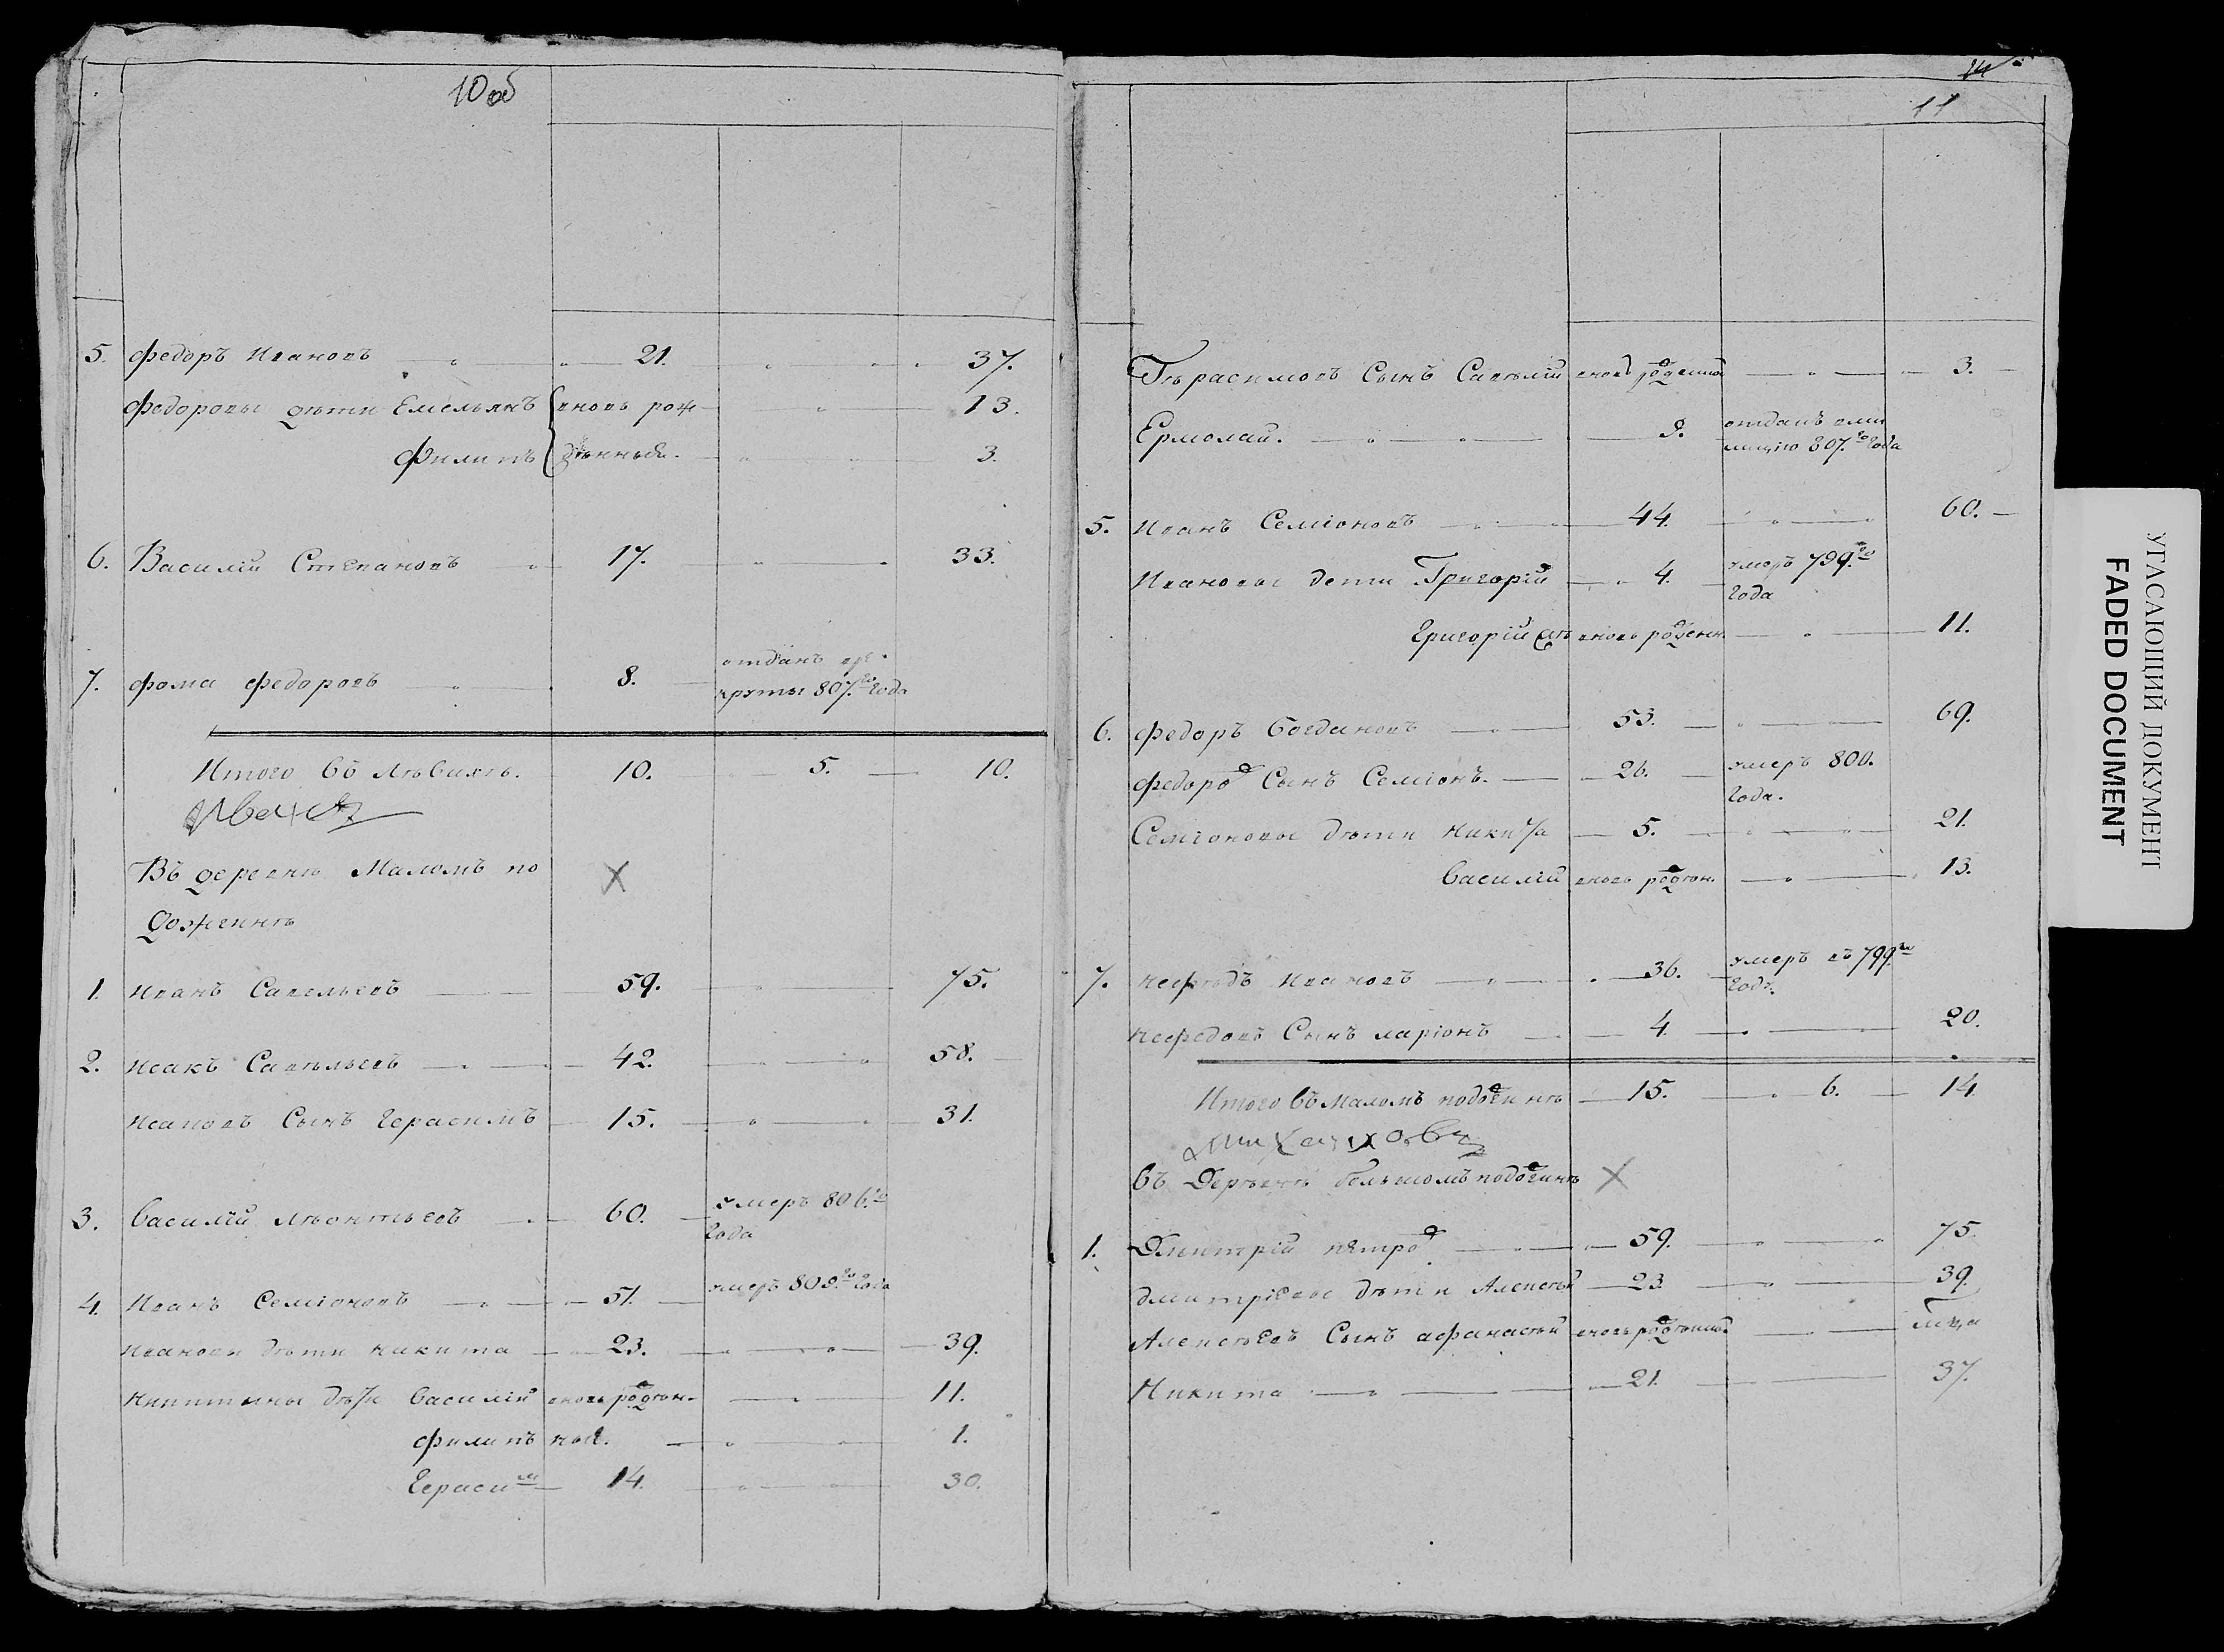 10 об
5. Федоръ Ивановъ 21. 37.
Федоровы дѣти Емельянъ вновь рож 13.
Филипъ дѣнныя. 3.
6. Василій Степановъ 17. 33.
7. Фома Федоровъ 8. отданъ
круты 807.го года
Итого въ 10. 5. 10.
Въ деревнѣ Маломъ по
дожгинѣ
1. Иванъ Савельевъ 59. 75.
2. Исакъ Савѣльевъ 42. 58.
Исаковъ Сынъ Герасимъ 15. 31.
3. Василій Лѣонтьевъ 60. умеръ 806.го
года
4. Иванъ Семіоновъ 51. умеръ 809.го года
Ивановы дѣти Никита 23. 39.
Никитины дѣти Василій вновь родіон 11.
Филипъ ныя. 1.
Герасим 14. 30.
14
11
Гѣрасимовъ Сынъ Савѣлій вновь 3.
Ермолай. 9. отданъ вми
лицію 807.го года
5. Иванъ Семіоновъ 44. 60.
Ивановы дети Григорій 4. умеръ 799.го
года
Григорій вновь 11.
6. Федоръ Богдановъ 53. 69.
Федоров Сынъ Семіонъ. 26. умеръ 800.
года.
Семіоновы дѣти Никита 5. 21.
Василій вновь 13.
7. Нефѣдъ Ивановъ 36. умеръ въ 799.го
годѣ.
Нефедовъ Сынъ Ларіонъ 4. 20.
Итого въ Маломъ 15. 6. 14
въ Деревнѣ большомъ
1. Дмитрій Пѣтров 59. 75.
Дмитріевы дѣти Алексѣй 23. 39.
Алексѣевъ Сынъ Афанасѣй вновь
Никита 21. 37.
УГАСАЮЩИЙ ДОКУМЕНТ
FADED DOCUMENT